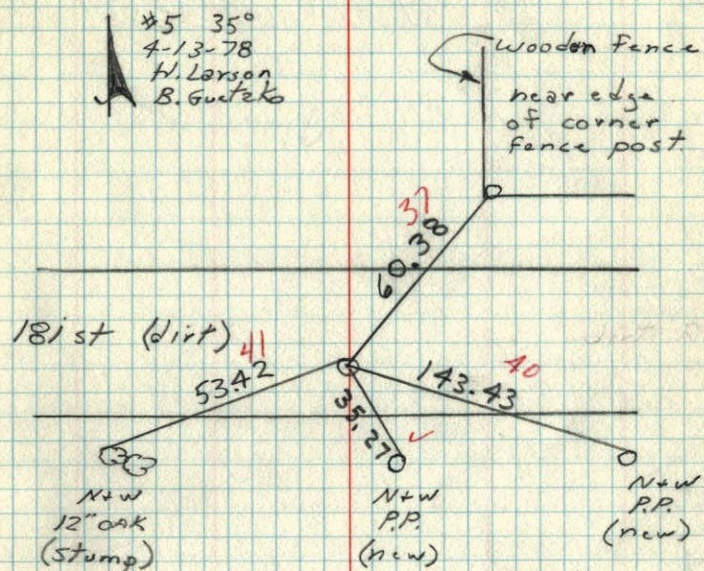 #5 35°
4-13-78
H. Larson
B. Guetzko
Wooden Fence
near edge
of corner
fence post.
37
60.38
181st (dirt)
41
53.42
40
143.43
35,27 ✓
N+W
12" OAK
(stump)
N+W
P.P.
(new)
N+W
P.P.
(new)